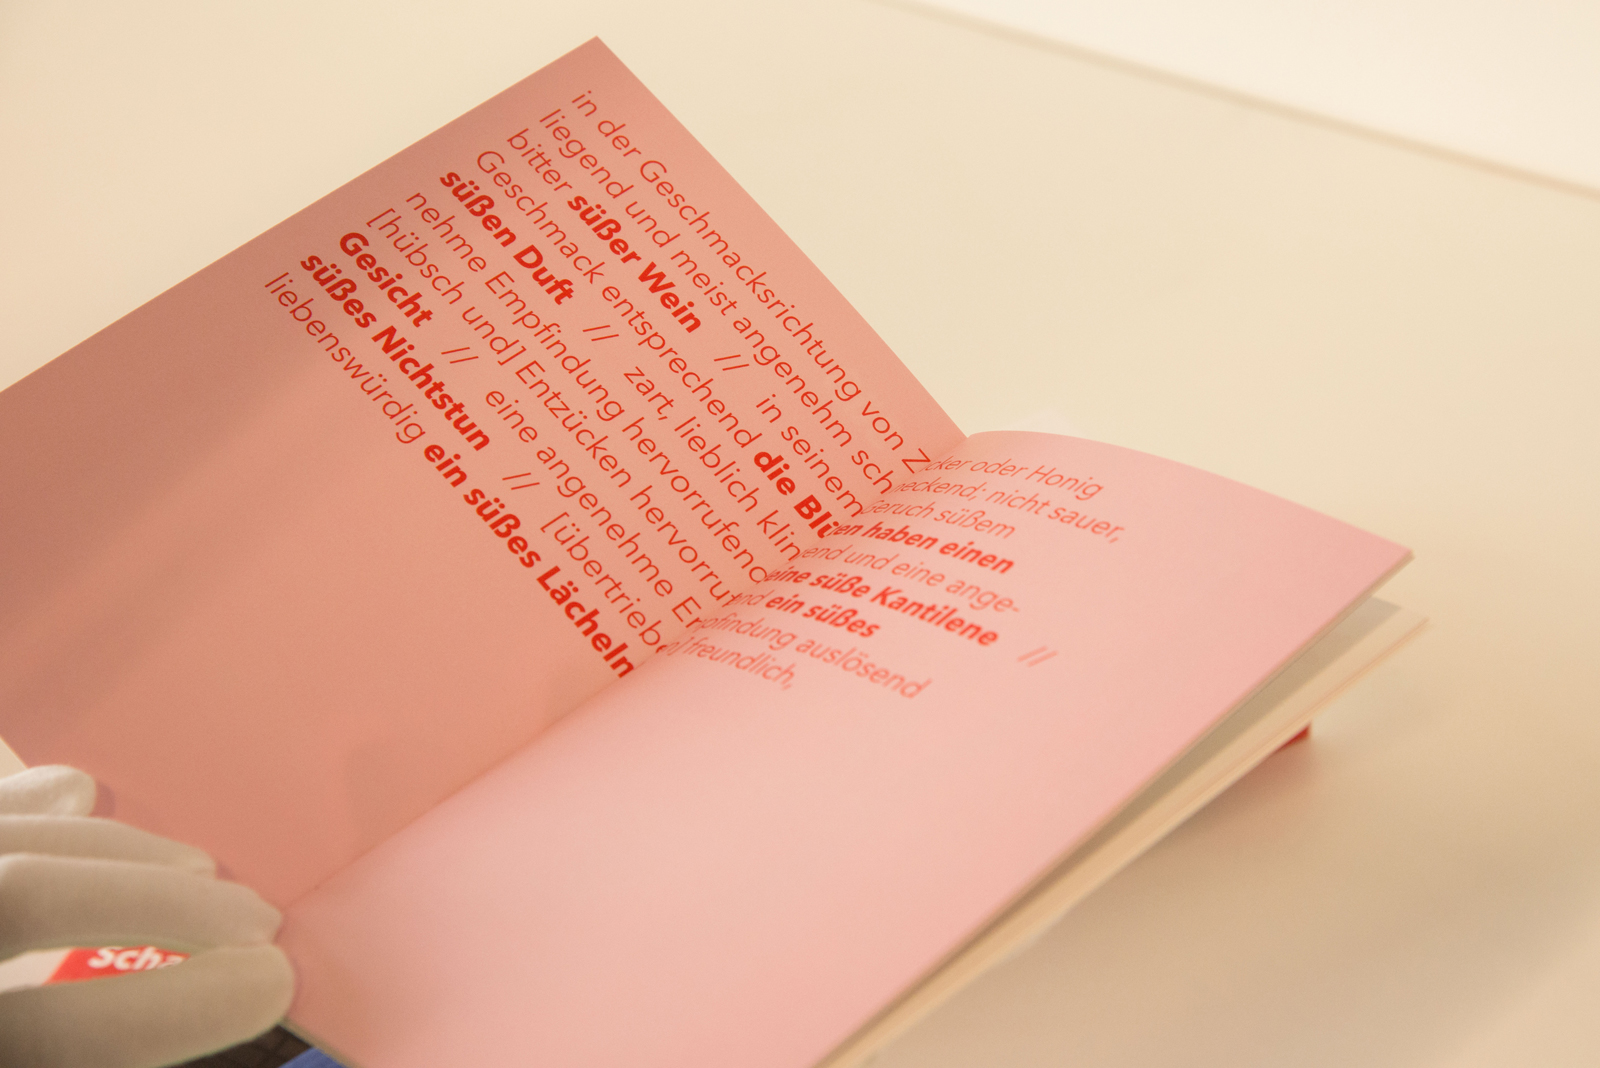 in der Geschmacksrichtung von Zucker oder Honig
liegend und meist angenehm schmeckend; nicht sauer,
bitter süßer Wein // in seinem Geruch süßem
Geschmack entsprechend die Blüten haben einen
süßen Duft // zart, lieblich klingend und eine ange-
nehme Empfindung hervorrufend eine süße Kantilene //
[hübsch und] Entzücken hervorrufend ein süßes
Gesicht // eine angenehme Empfindung auslösend
süßes Nichtstun // [übertrieben] freundlich,
liebenswürdig ein süßes Lächeln
Scha